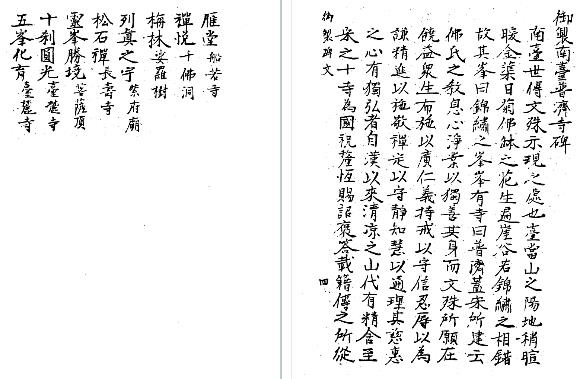 御製南臺普濟寺碑
南臺世傳文殊示現之處也臺當山之陽地稍暄
暖金蓮日菊佛缽之花生遍崖谷若錦繡之相錯
故其峯曰錦繡之峯峯有寺曰普濟蓋宋所建云
佛氏之教息心淨業以獨善其身而文殊所願在
饒益衆生布施以廣仁義持戒以守信忍辱以為
謙精進以施敬禪定以守靜知慧以通理其慈惠
之心有獨弘者自漢以來清凉之山代有精舍至
宋之十寺為國祝釐恆賜詔褒答載籍傳之所從
御製碑文 四
雁堂 般若寺
禪悅 千佛洞
梅林 娑羅樹
列真之宇 紫府廟
松石禪 長壽寺
靈峯勝境 菩薩頂
十剎圓光 臺麓寺
五峯化育 臺麓寺